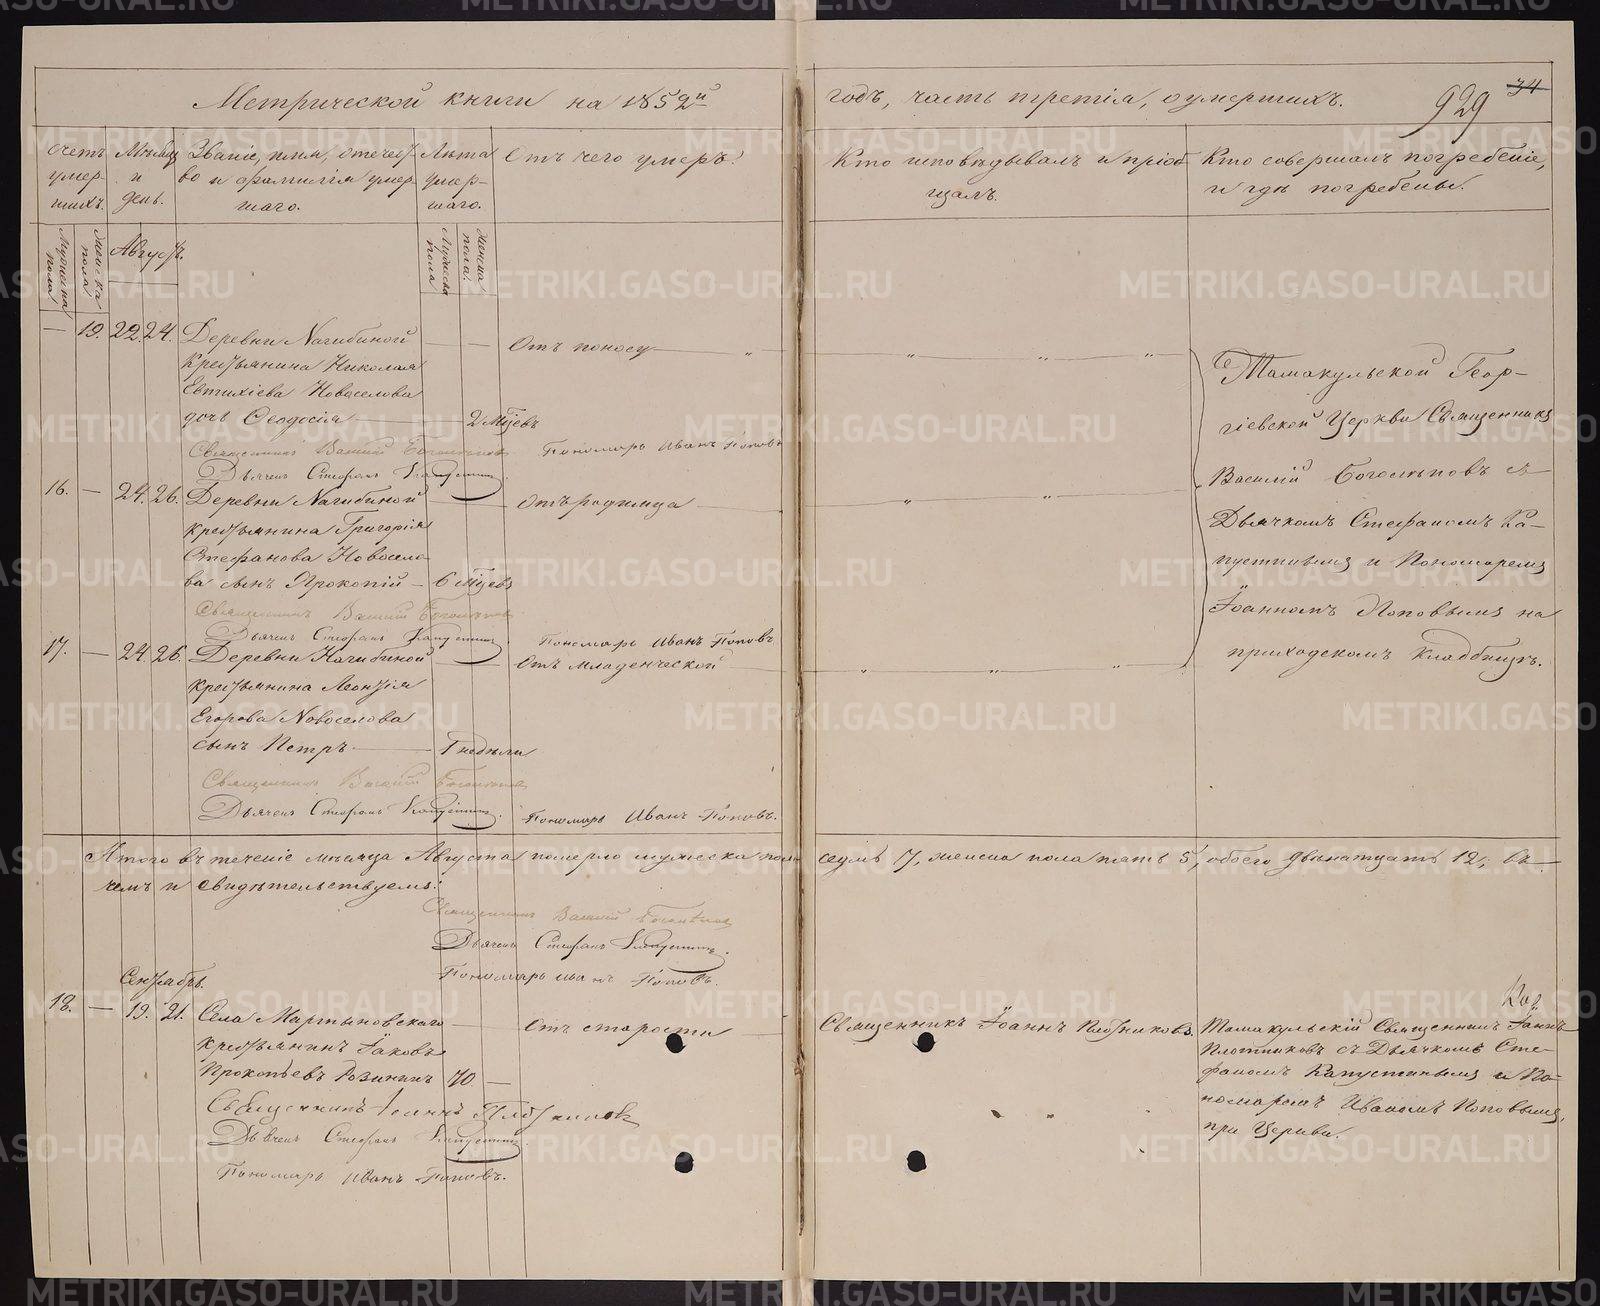 Метрической книги на 1852й годъ, часть третія, о умершихъ.
929
34
Счетъ умер-шихъ.
Мѣсяцъ и день.
Званіе, имя, отечест-
во и фамилія умер-
шаго.
Лѣта умер-шаго.
Отъ чего умеръ.
Кто исповѣдывалъ и пріоб-
щалъ.
Кто совершалъ погребеніе,
и гдѣ погребены.
Мужеска пола
Женска пола
Августъ.
Мужеска пола
Женска пола.
— 19. 22. 24. Деревни Нагибиной
Крестьянина Николая
Евтихіева Новоселова
дочь Ѳеодосія — 2 мѣ́ся́цевъ
Отъ поносу
Священникъ Василій Боголѣповъ
Пономарь Иванъ Поповъ
Дьячекъ Стефанъ Капустинъ
16. — 24. 26. Деревни Нагибиной
крестьянина Григорія
Стефанова Новосело-
ва сынъ Прокопій — 6 мѣсяцевъ
Отъ родимца
Священникъ Василій Боголѣповъ
Дьячекъ Стефанъ Капустинъ.
Пономарь Иванъ Поповъ
17. — 24. 26. Деревни Нагибиной
крестьянина Леонтія
Егорова Новоселова
сынъ Петръ — 1 недѣли
Отъ младенческой
Священникъ Василій Боголѣповъ
Дьячекъ Стефанъ Капустинъ.
Пономарь Иванъ Поповъ.
Тамакульской Геор-
гіевской Церкви Священникъ
Василій Боголѣповъ съ
Дьячкомъ Стефаномъ Ка-
пустинымъ и Пономаремъ
Іоанномъ Поповымъ на
приходскомъ кладбищѣ.
Итого въ теченіе мѣсяца Августа померло мужеска пола седмь 7, женска пола пять 5, обоего двенатцать 12; въ
чемъ и свидѣтельствуемъ:
Священникъ Василій Боголѣповъ
Дьячекъ Стефанъ Капустинъ.
Пономарь Иванъ Поповъ.
Сентябрь.
18. — 19. 21. Села Мартыновскаго
крестьянинъ Іаковъ
Прокопьевъ Розинъ 70 —
Отъ старости
Священникъ Іоаннъ Плотниковъ
Тамакульскій Священникъ Іоаннъ
Плотниковъ съ Дьячкомъ Сте-
фаномъ Капустинымъ и По-
номаремъ Иваномъ Поповымъ,
при Церкви.
Священникъ Іоаннъ Плотниковъ
Дьячекъ Стефанъ Капустинъ.
Пономарь Иванъ Поповъ.
METRIKI.GASO-URAL.RU